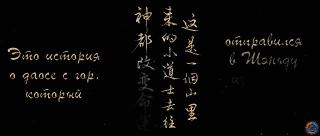 Это история
о даосе с гор,
который
这是一個山里
来的小道士去往
神都改变命
отправился
в Шэньду
и